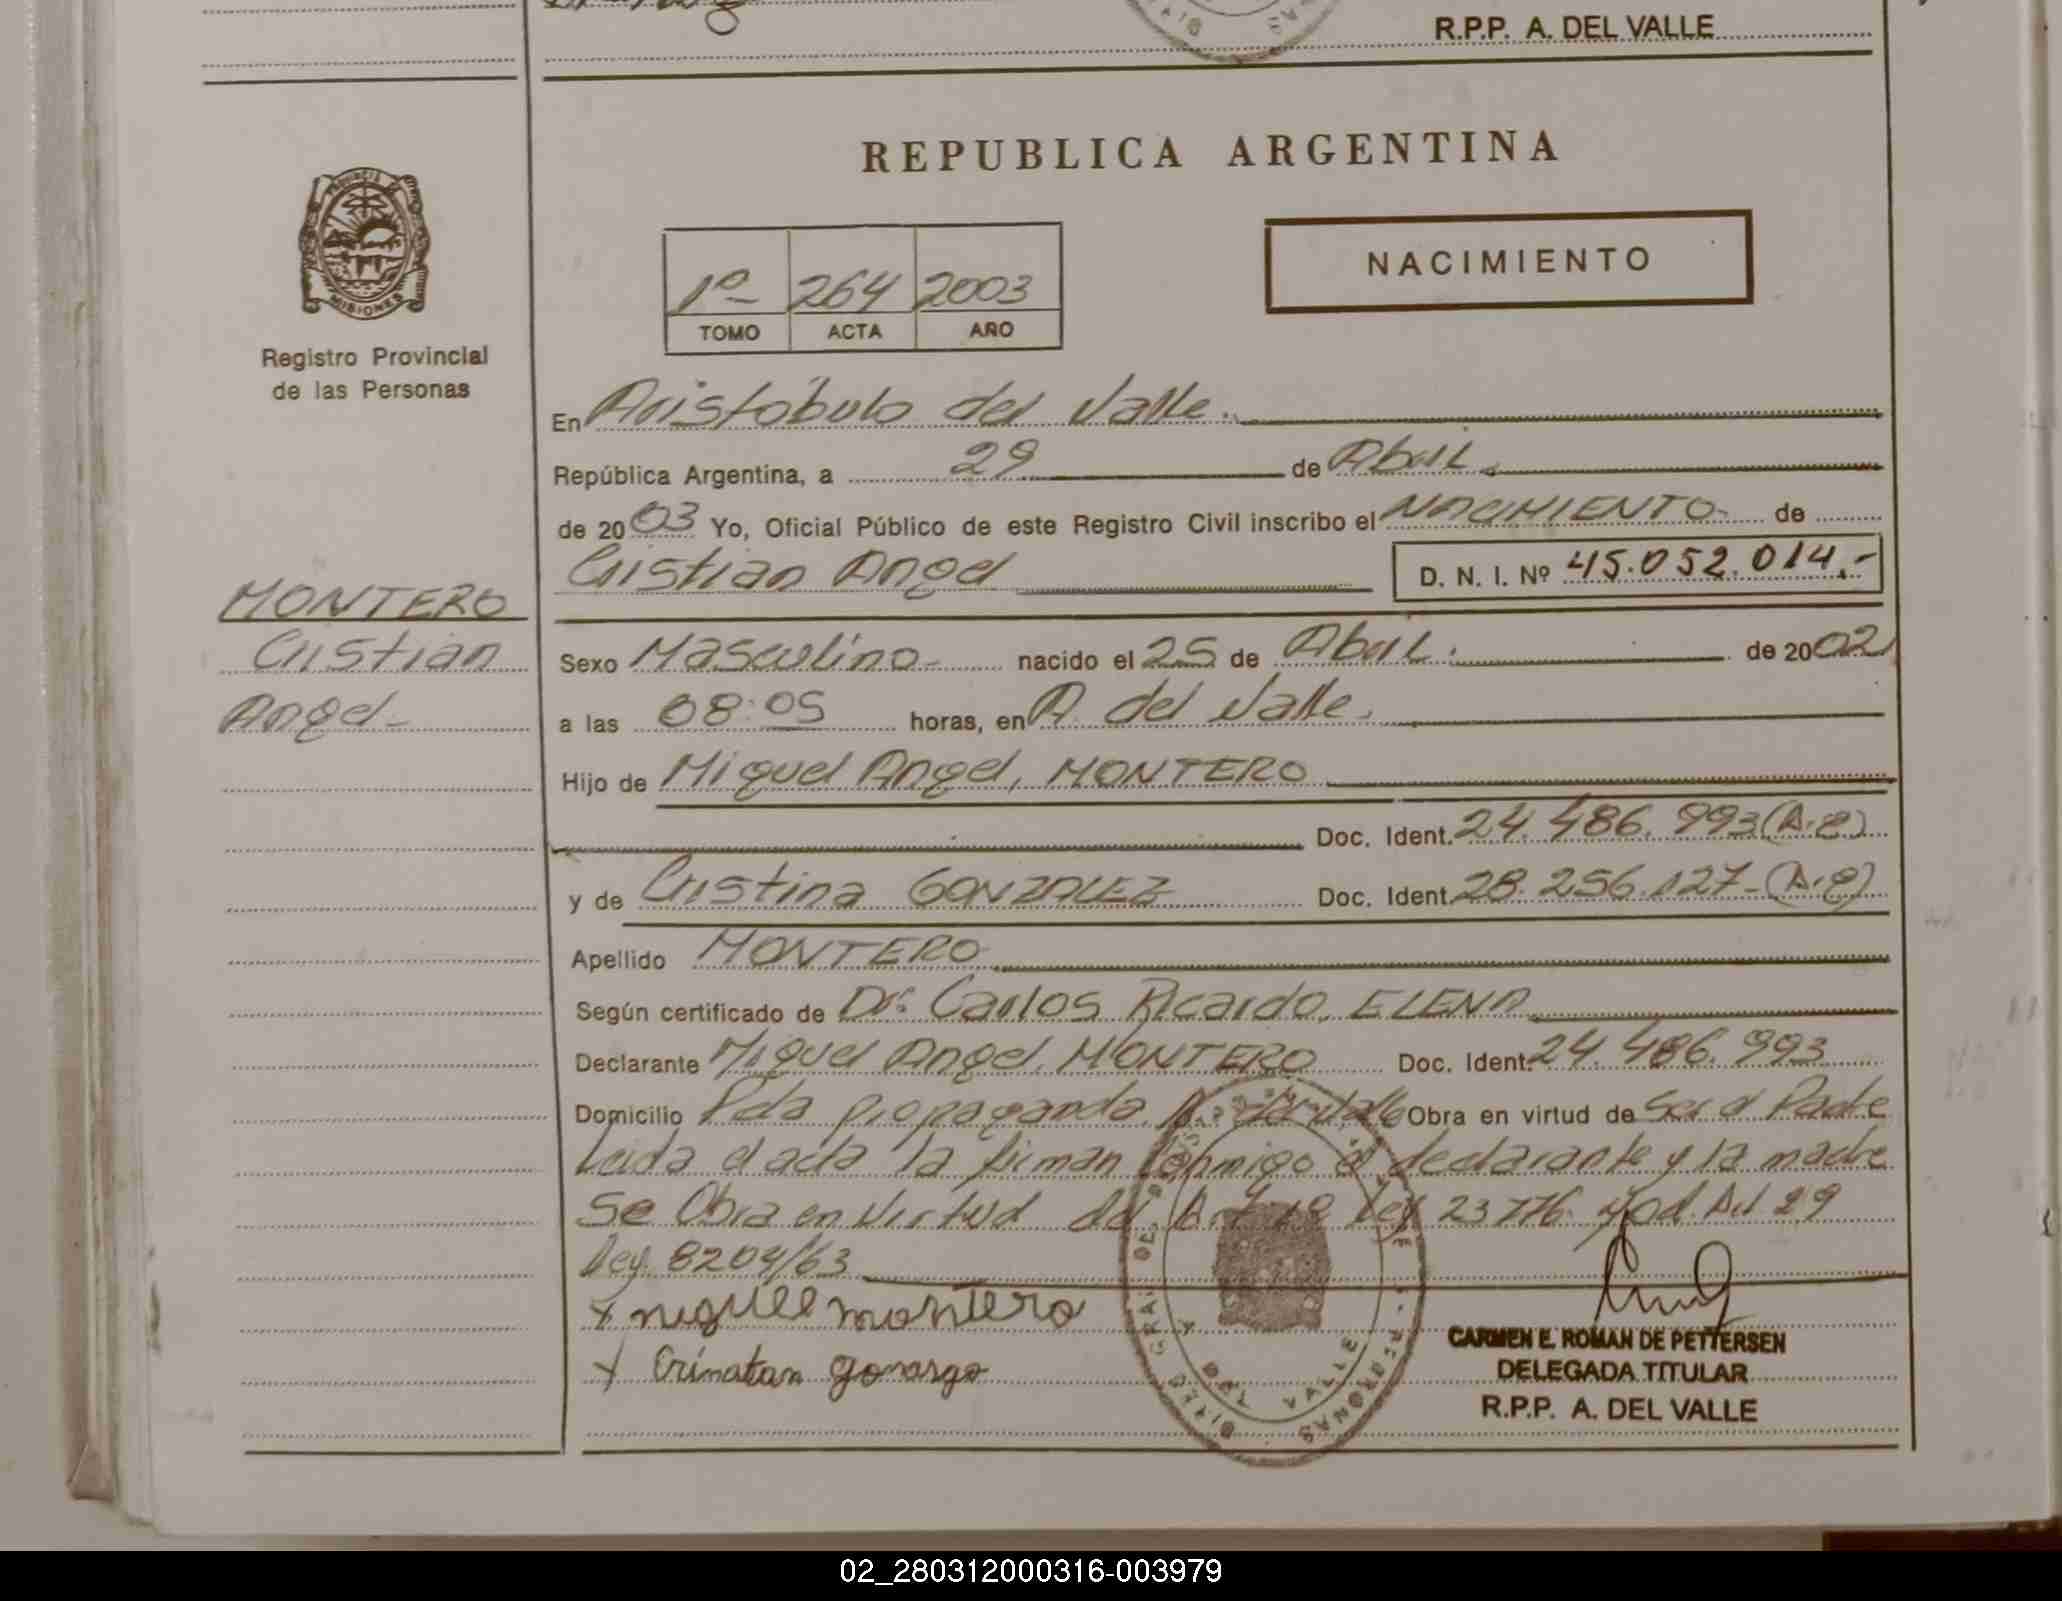 R.P.P. A. DEL VALLE
REPUBLICA ARGENTINA
PROVINCIA DE
MISIONES
Registro Provincial
de las Personas
1º- 264 2003
TOMO ACTA AÑO
NACIMIENTO
En Aristóbulo del Valle.
República Argentina, a 29 de Abril.
de 2003 Yo, Oficial Público de este Registro Civil inscribo el NACIMIENTO- de
Cristian Angel D. N. I. Nº 45.052.014.-
MONTERO
Cristian
Angel-
Sexo Masculino- nacido el 25 de Abril. de 2002
a las 08:05 horas, en A. del Valle.
Hijo de Miguel Angel, MONTERO
Doc. Ident. 24.486.993 (A.8)
y de Cristina GONZALEZ Doc. Ident. 28.256.127- (A.8)
Apellido MONTERO
Según certificado de Dr: Carlos Ricardo, ELENA
Declarante Miguel Angel, MONTERO Doc. Ident. 24.486.993
Domicilio Pda propaganda, A. del Valle Obra en virtud de Ser el Padre
Leida el acta la firman conmigo el declarante y la madre
Se Obra en Virtud del Ley 23776. Mod. Art 29
Ley 8204/63
x miguel montero
x
CARMEN E. ROMAN DE PETTERSEN
DELEGADA TITULAR
R.P.P. A. DEL VALLE
A. DEL VALLE
02_280312000316-003979